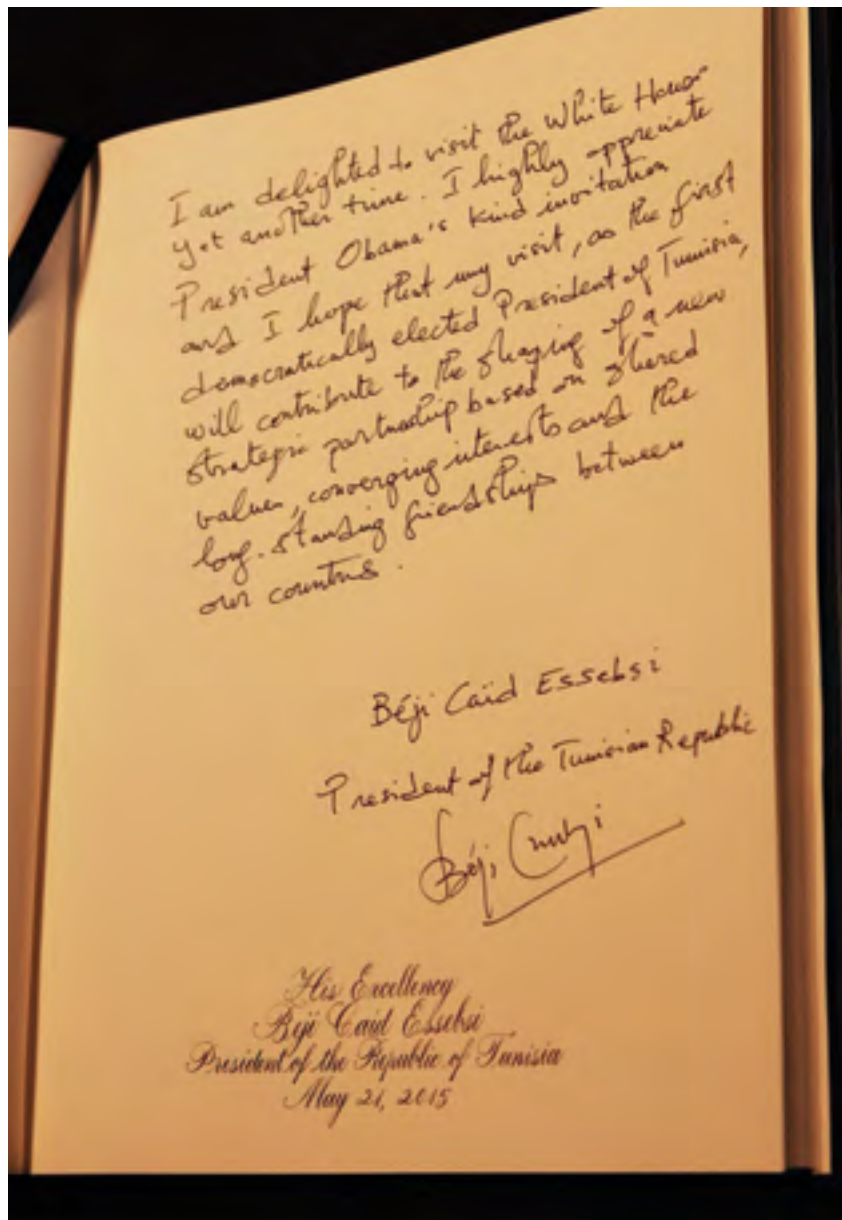 I am delighted to visit the White House
yet another time. I highly appreciate
President Obama's kind invitation
and I hope that my visit, as the first
democratically elected President of Tunisia,
will contribute to the shaping of a new
strategic partnership based on shared
values, converging interests and the
long-standing friendships between
our countries.
Béji Caïd Essebsi
President of the Tunisian Republic
Béji
His Excellency
Beji Caid Essebsi
President of the Republic of Tunisia
May 21, 2015